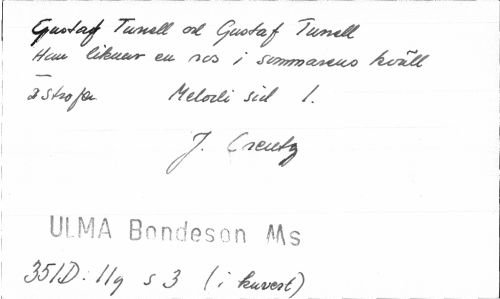 Gustaf Tunell och Gustaf Tunell
Han liknar en ros i sommarens kväll
2 strofer Melodi sid 1.
J. Creutz
ULMA Bondeson Ms
351D: 11g s 3 (i kuvert)